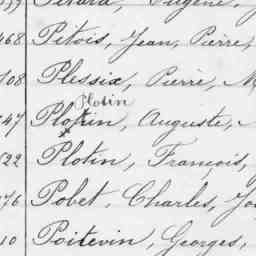 599 Pérard, Eugène, J
468 Pitois, Jean, Pierre,
108 Plessix, Pierre, M
Plotin
547 Plorin, Auguste,
522 Plotin, François, J
576 Pobet, Charles, Jo
10 Poitevin, Georges,